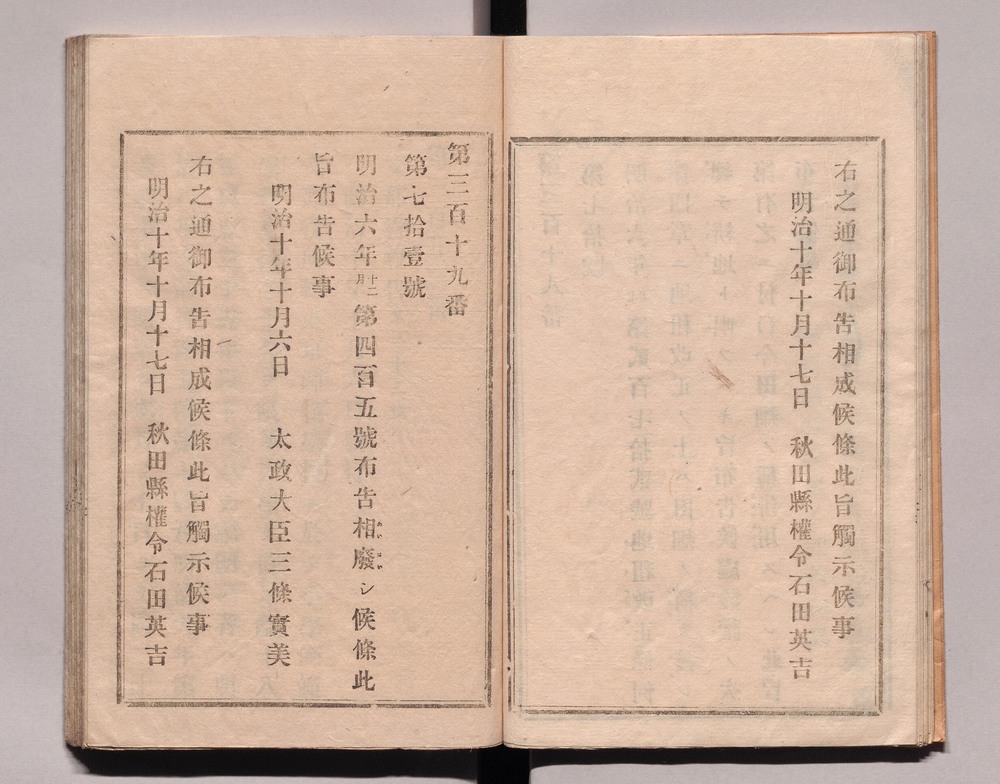 右之通御布告相成候條此旨觸示候事
明治十年十月十七日　秋田縣權令石田英吉
第三百十九番
第七拾壹號
明治六年十二月第四百五號布告相廢シ候條此
旨布告候事
明治十年十月六日　太政大臣三條實美
右之通御布告相成候條此旨觸示候事
明治十年十月十七日　秋田縣權令石田英吉